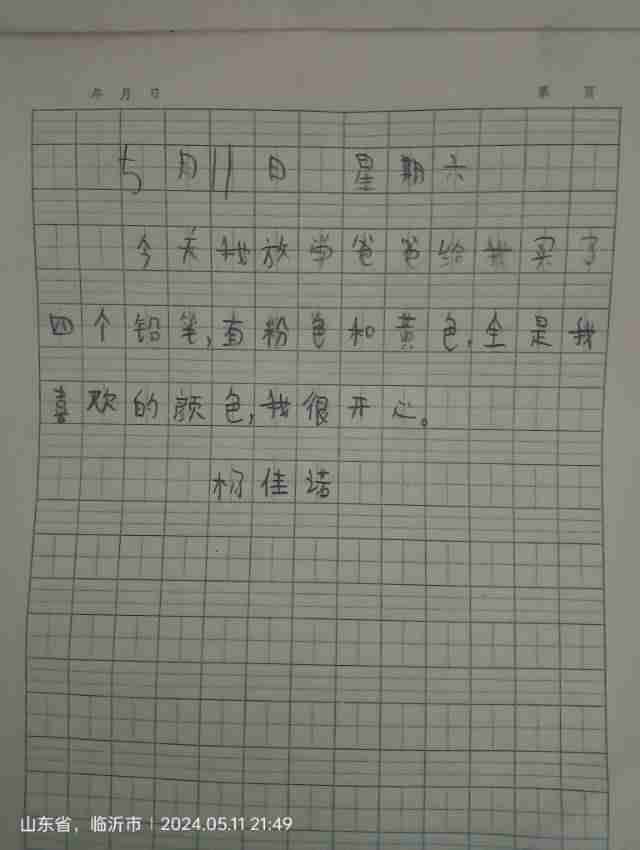 年 月 日 第 页
5月11日 星期六
今天我放学爸爸给我买了
四个铅笔,有粉色和黄色,全是我
喜欢的颜色,我很开心。
杨佳诺
山东省，临沂市 | 2024.05.11 21:49